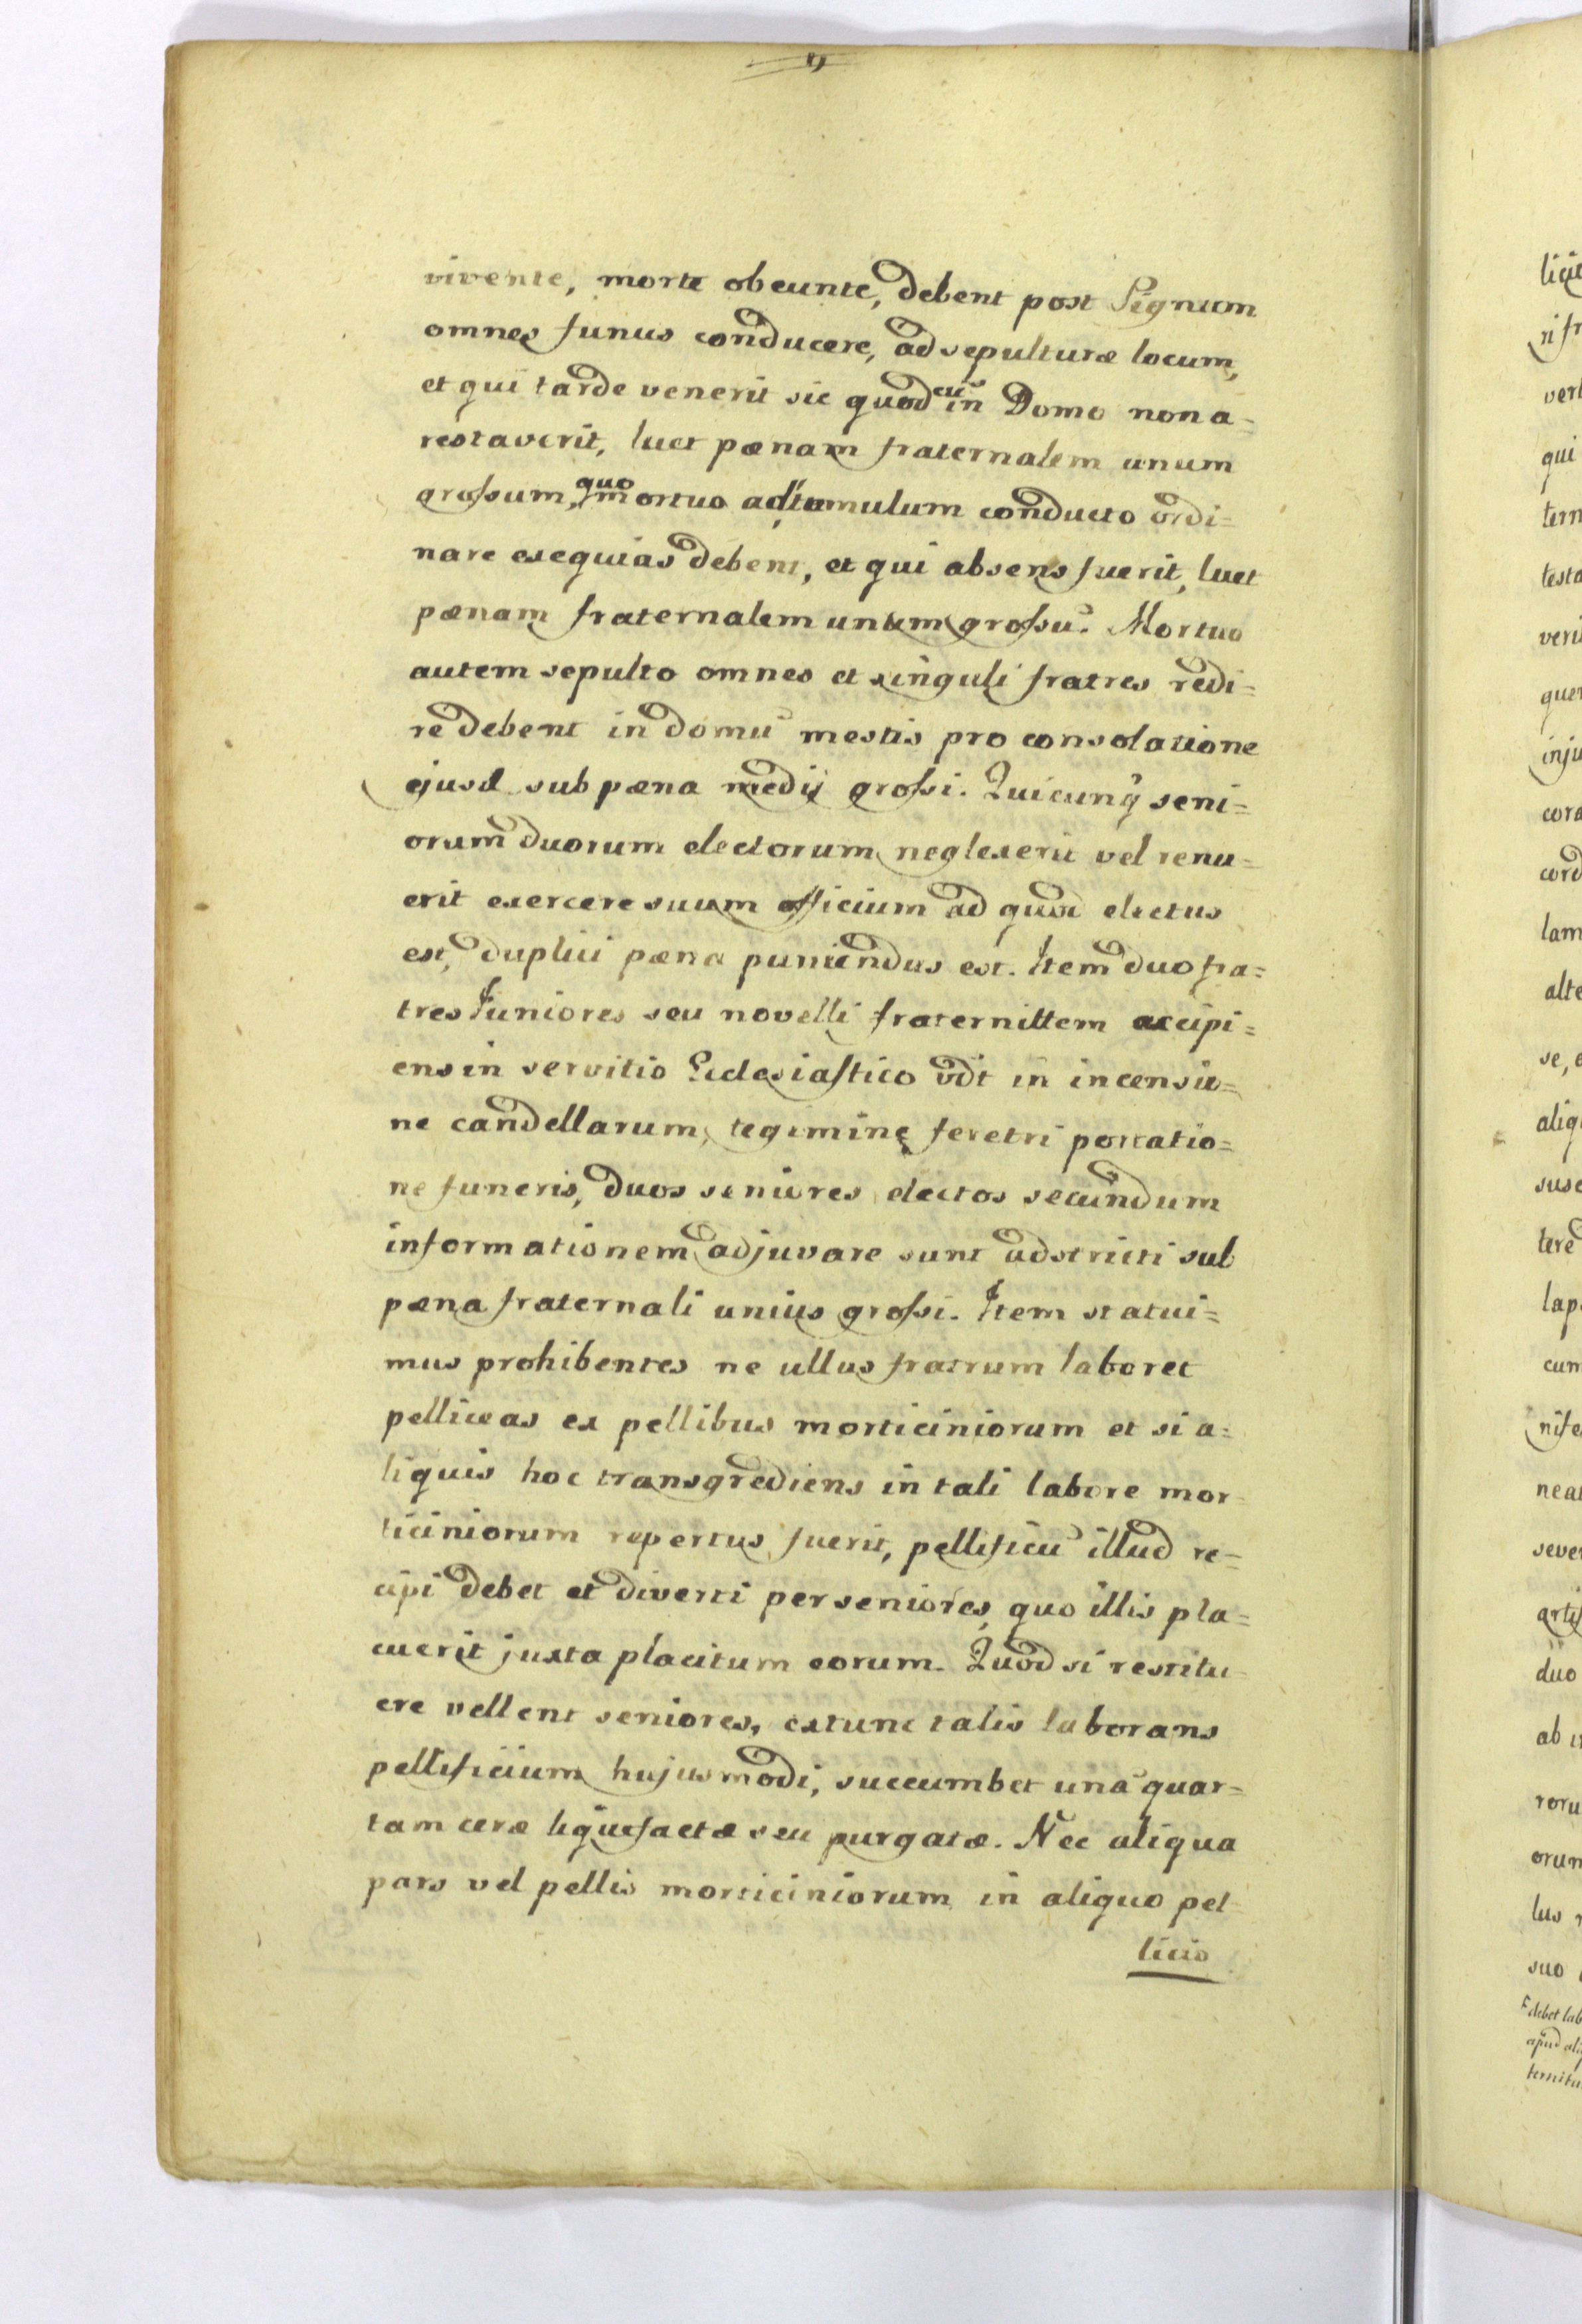 vivente, morte obeunte, debent post Signum
omnes funus conducere, ad sepulturæ locum,
et qui tarde venerit sic quod eū in Domo non a=
restaverit, luet pœnam fraternalem unum
grossum, quo mortuo ad tumulum conducto ordi=
nare exequias debent, et qui absens fuerit, luet
pœnam fraternalem unum grossū. Mortuo
autem sepulto omnes et singuli fratres redi=
re debent in domū mestis pro consolatione
ejusd sub pœna medij grossi. Quicunq̃ seni=
orum duorum electorum neglexerit vel renu=
erit exercere suum officium ad quod electus
est, duplici pœna puniendus est. Item duo fra=
tres Juniores seu novelli fraternittem accipi=
ens in servitio Ecclesiastico vdt in incensio=
ne candellarum, tegimine feretri portatio=
ne funeris, duos seniores electos secundum
informationem adjuvare sunt adstricti sub
pœna fraternali unius grossi. Item statui=
mus prohibentes ne ullus fratrum laboret
pelliceas ex pellibus morticiniorum et si a=
liquis hoc transgrediens in tali labore mor
ticiniorum repertus fuerit, pellificiū illud re=
cipi debet et diverti per seniores, quo illis pla=
cuerit juxta placitum eorum. Quod si restitu
ere vellent seniores, extunc talis laborans
pellificium hujusmodi, succumbet unā quar=
tam ceræ liquefactæ seu purgatæ. Nec aliqua
pars vel pellis morticiniorum in aliquo pel
licio